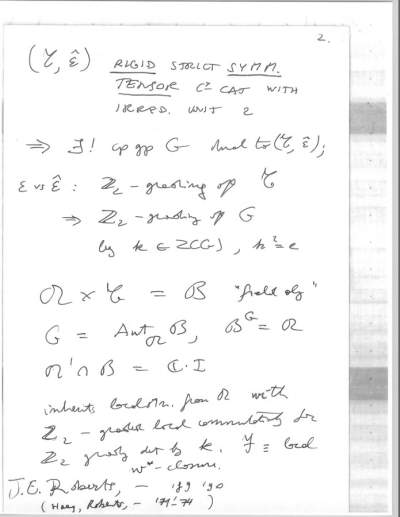 2.
(𝒯, ε̂) RIGID STRICT SYMM.
TENSOR C* CAT WITH
IRRED. UNIT 2
⇒ ∃! cp gp G dual to (𝒯, ε̂);
ε vs ε̂ : ℤ₂ - grading of 𝒯
⇒ ℤ₂ - grading of G
by k ∈ Z(G), k² = e
𝒪 × 𝒯 = ℬ "field alg"
G = Aut_𝒪 ℬ, ℬ^G = 𝒪
𝒪' ∩ ℬ = ℂ·I
inherits local str. from 𝒪 with
ℤ₂ - graded local commutativity for
ℤ₂ grading det by k. ℱ ≡ local
w*-closure.
J.E. Roberts, – '89 '90
(Haag, Roberts, – '71-'74)